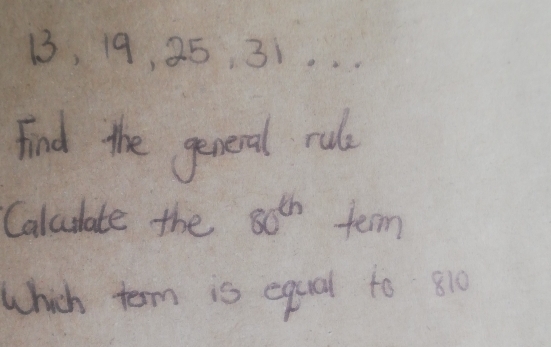 13, 19, 25, 31 ...
Find the general rule
Calculate the 80th term
Which term is equal to 810